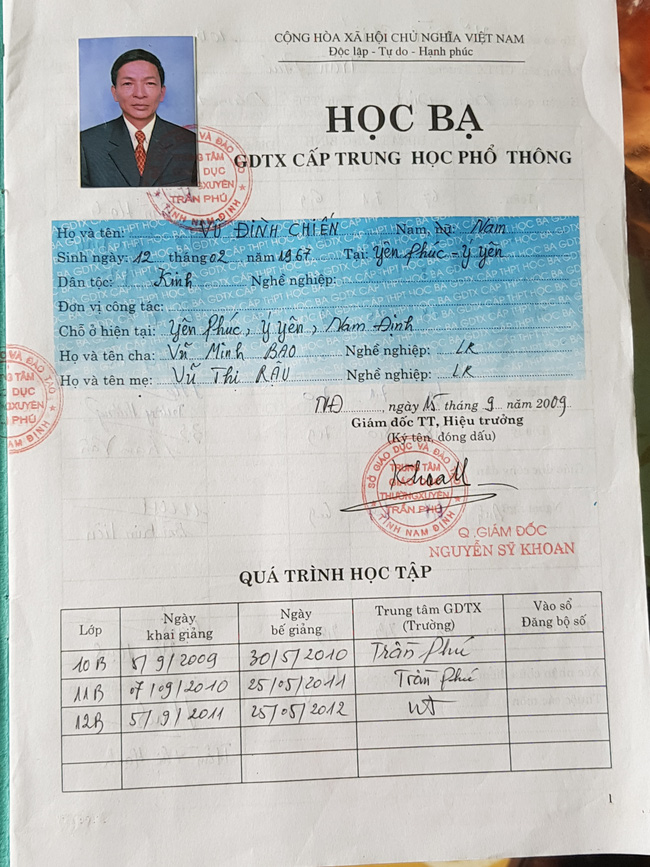 CỘNG HÒA XÃ HỘI CHỦ NGHĨA VIỆT NAM
Độc lập - Tự do - Hạnh phúc
HỌC BẠ
GDTX CẤP TRUNG HỌC PHỔ THÔNG
Họ và tên: VŨ ĐÌNH CHIẾN Nam, nữ: Nam
Sinh ngày: 12 tháng 02 năm 1967 Tại: Yên Phúc - Ý Yên
Dân tộc: Kinh Nghề nghiệp:
Đơn vị công tác:
Chỗ ở hiện tại: Yên Phúc, Ý Yên, Nam Định
Họ và tên cha: Vũ Minh BAO Nghề nghiệp: LR
Họ và tên mẹ: Vũ Thị RAU Nghề nghiệp: LR
NĐ, ngày 15 tháng 9 năm 2009
Giám đốc TT, Hiệu trưởng
(Ký tên, đóng dấu)
SỞ GIÁO DỤC VÀ ĐÀO TẠO
TRUNG TÂM
GIÁO DỤC
THƯỜNG XUYÊN
TRẦN PHÚ
TỈNH NAM ĐỊNH
Q.GIÁM ĐỐC
NGUYỄN SỸ KHOAN
QUÁ TRÌNH HỌC TẬP
Lớp Ngày khai giảng Ngày bế giảng Trung tâm GDTX (Trường) Vào sổ Đăng bộ số
10B 5/9/2009 30/5/2010 Trần Phú
11B 07/09/2010 25/05/2011 Trần Phú
12B 5/9/2011 25/05/2012
1